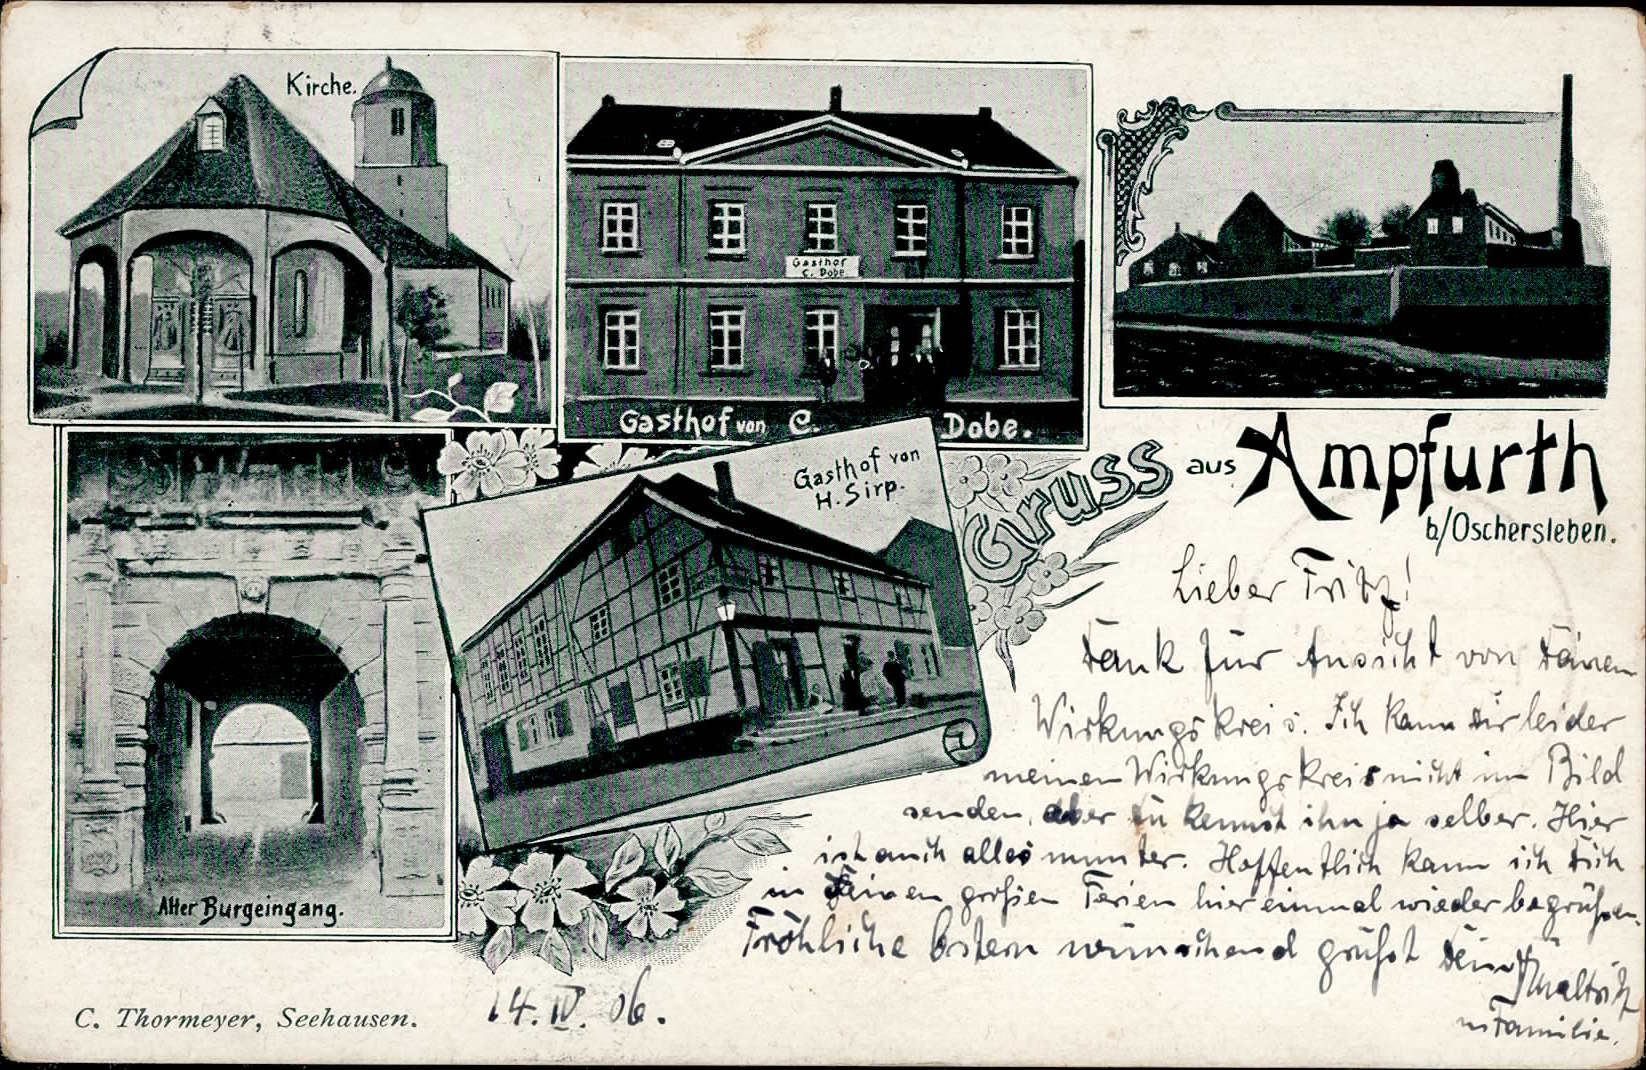 Kirche.
Gasthof
C. Dobe
Gasthof von C. Dobe.
Gasthof von
H. Sirp.
Alter Burgeingang.
Gruss aus Ampfurth
b/Oschersleben.
Lieber Fritz!
Dank für Ansicht von Deinem
Wirkungskreis. Ich kann Dir leider
meinen Wirkungskreis nicht im Bild
senden, aber Du kennst ihn ja selber. Hier
ist auch alles munter. Hoffentlich kann ich Dich
in Deinen großen Ferien hier einmal wieder begrüßen.
Fröhliche Ostern wünschend grüßt Dein
Familie.
14. IV. 06.
C. Thormeyer, Seehausen.